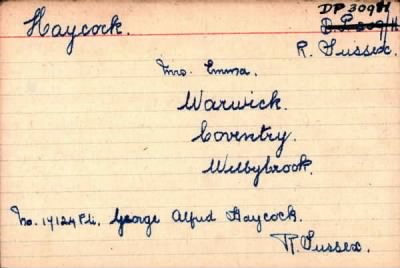 DP 309H
Haycock.
R. Sussex.
Mrs. Emma.
Warwick.
Coventry.
Willbybrook.
No. 17124 Pte. George Alfred Haycock.
R. Sussex.